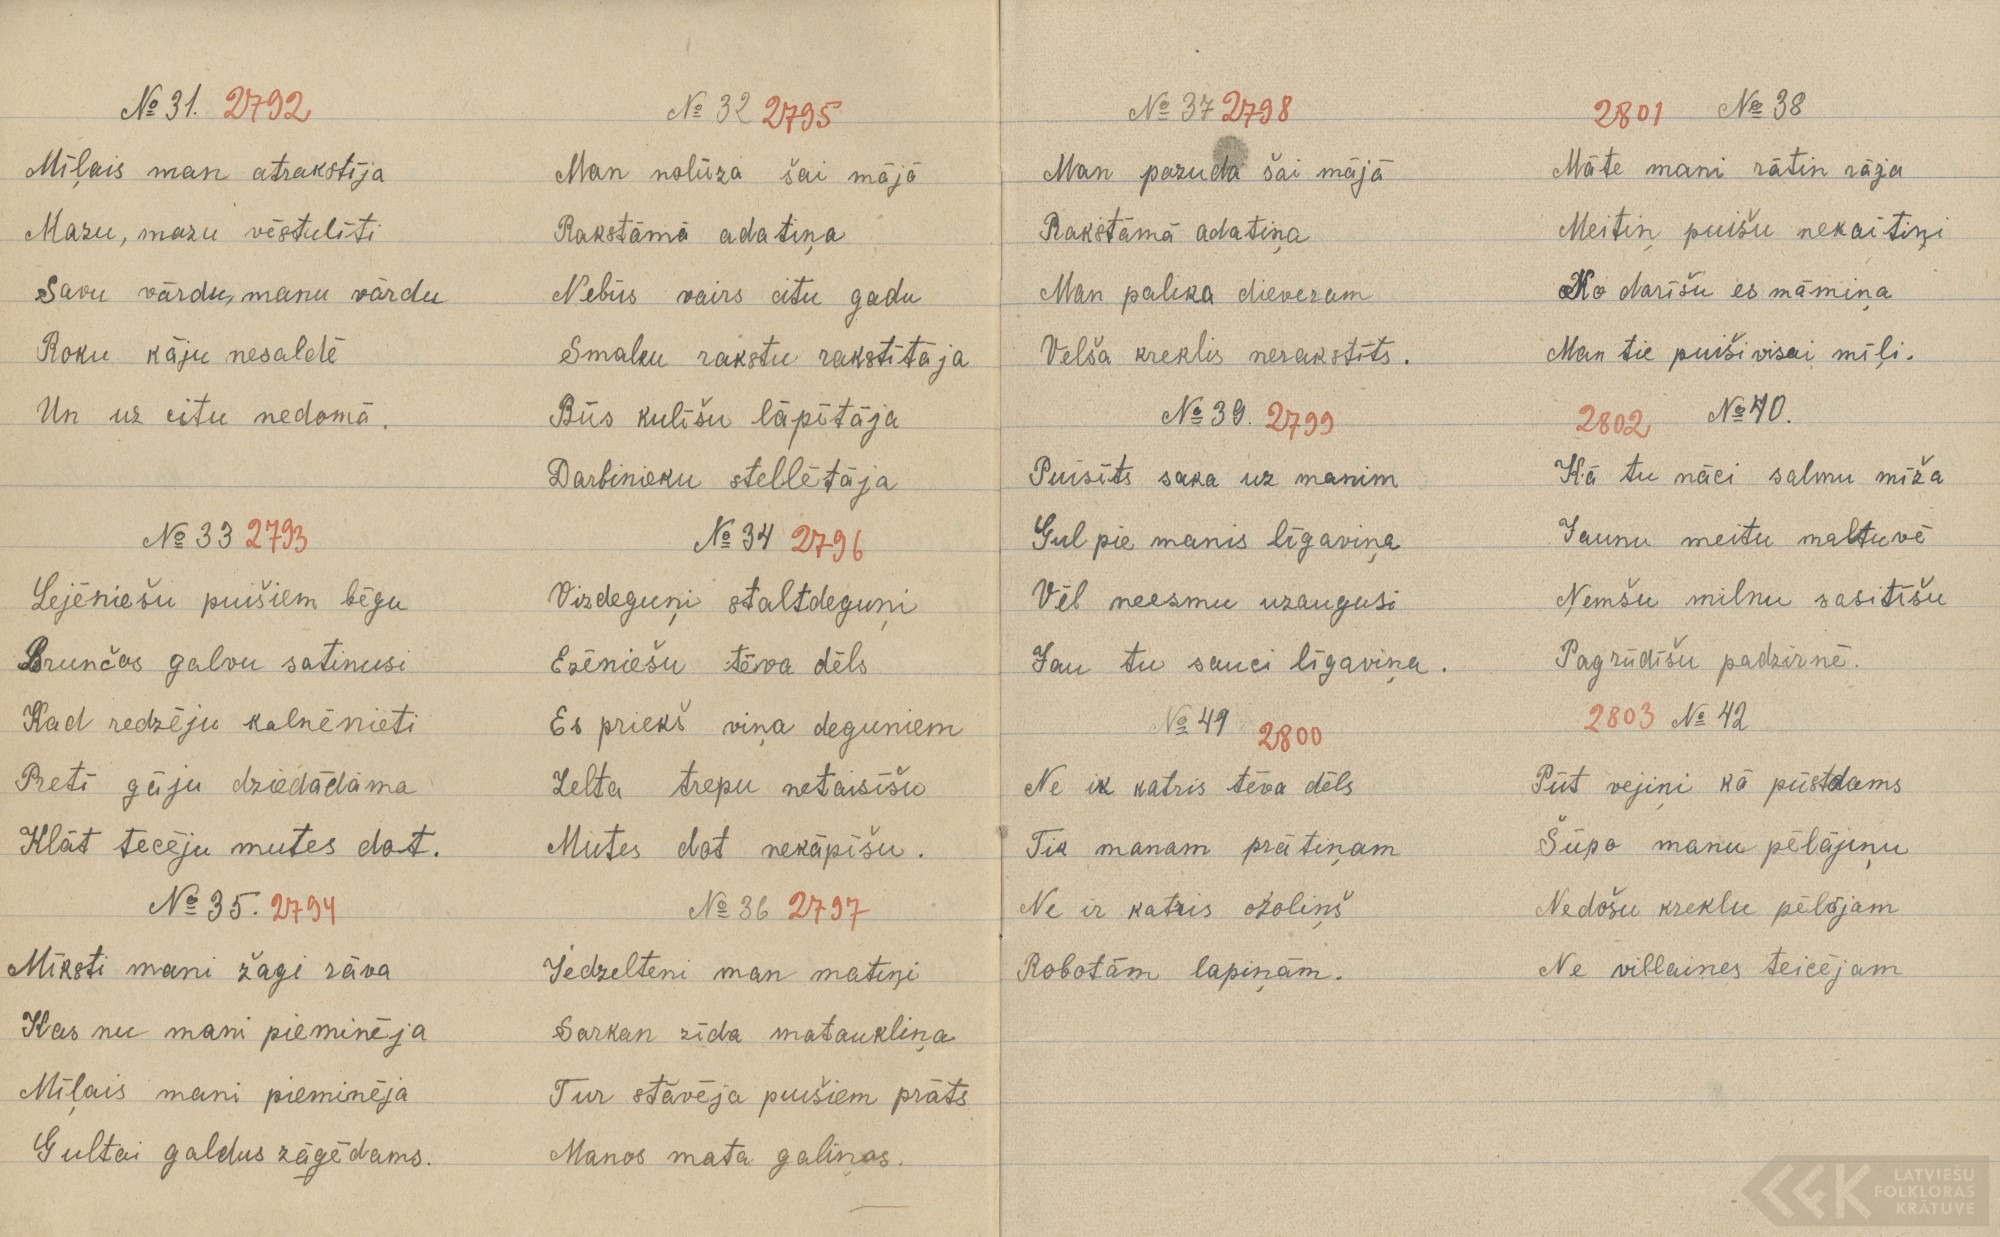 № 31. 2792
Mīļais man atrakstīja
Mazu, mazu vēstulīti
Savu vārdu, manu vārdu
Roku kāju nesaldē
Un uz citu nedomā.
№ 33 2793
Lejēniešu puišiem bēgu
Brunčos galvu satinusi
Kad redzēju kalnēnieti
Pretī gāju dziedādama
Klāt tecēju mutes dot.
№ 35. 2794
Mīksti mani žagi rāva
Kas nu mani pieminēja
Mīļais mani pieminēja
Gultai galdus zāģēdams.
№ 32 2795
Man nolūza šai mājā
Rakstāmā adatiņa
Nebūs vairs citu gadu
Smalku rakstu rakstītāja
Būs kulīšu lāpītāja
Darbinieku stellētāja
№ 34 2796
Vizdeguņi staltdeguņi
Ezēniešu tēva dēls
Es priekš viņa deguniem
Zelta trepu netaisīšu
Mutes dot nekāpīšu.
№ 36 2797
Iedzelteni man matiņi
Sarkan zīda mataukliņa
Tur stāvēja puišiem prāts
Manos mata galiņos.
№ 37 2798
Man pazuda šai mājā
Rakstāmā adatiņa
Man palika dieveram
Velša kreklis nerakstīts.
№ 39. 2799
Puisīts saka uz manim
Gul pie manis līgaviņa
Vēl neesmu uzaugusi
Jau tu sauci līgaviņa.
№ 49 2800
Ne ik katris tēva dēls
Tik manam prātiņam
Ne ir katris ozoliņš
Robotām lapiņām.
2801 № 38
Māte mani rātin rāja
Meitiņ puišu nekaitiņi
Ko darīšu es māmiņa
Man tie puiši visai mīļi.
2802 № 40.
Kā tu nāci salmu mīža
Jaunu meitu maltuvē
Ņemšu milnu sasitīšu
Pagrūdīšu padzirnē.
2803 № 42
Pūt vejiņi kā pūstdams
Šūpo manu pēlājiņu
Nedošu kreklu pēlājam
Ne villaines teicējam
LATVIEŠU
FOLKLORAS
KRĀTUVE